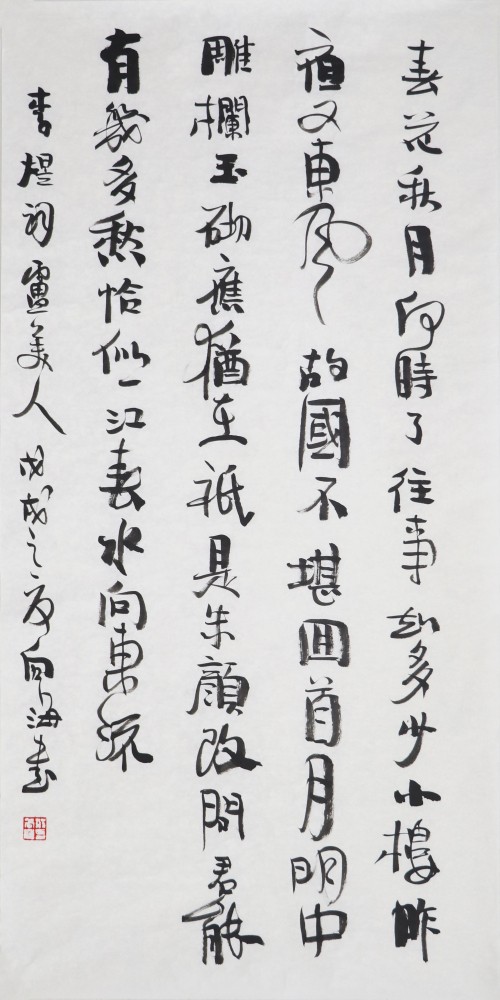 春花秋月何時了往事知多少小樓昨
宿又東風故國不堪回首月明中
雕欄玉砌應猶在祇是朱顏改問君能
有幾多愁恰似一江春水向東流
李煜詞虞美人戊戌之夏向海書